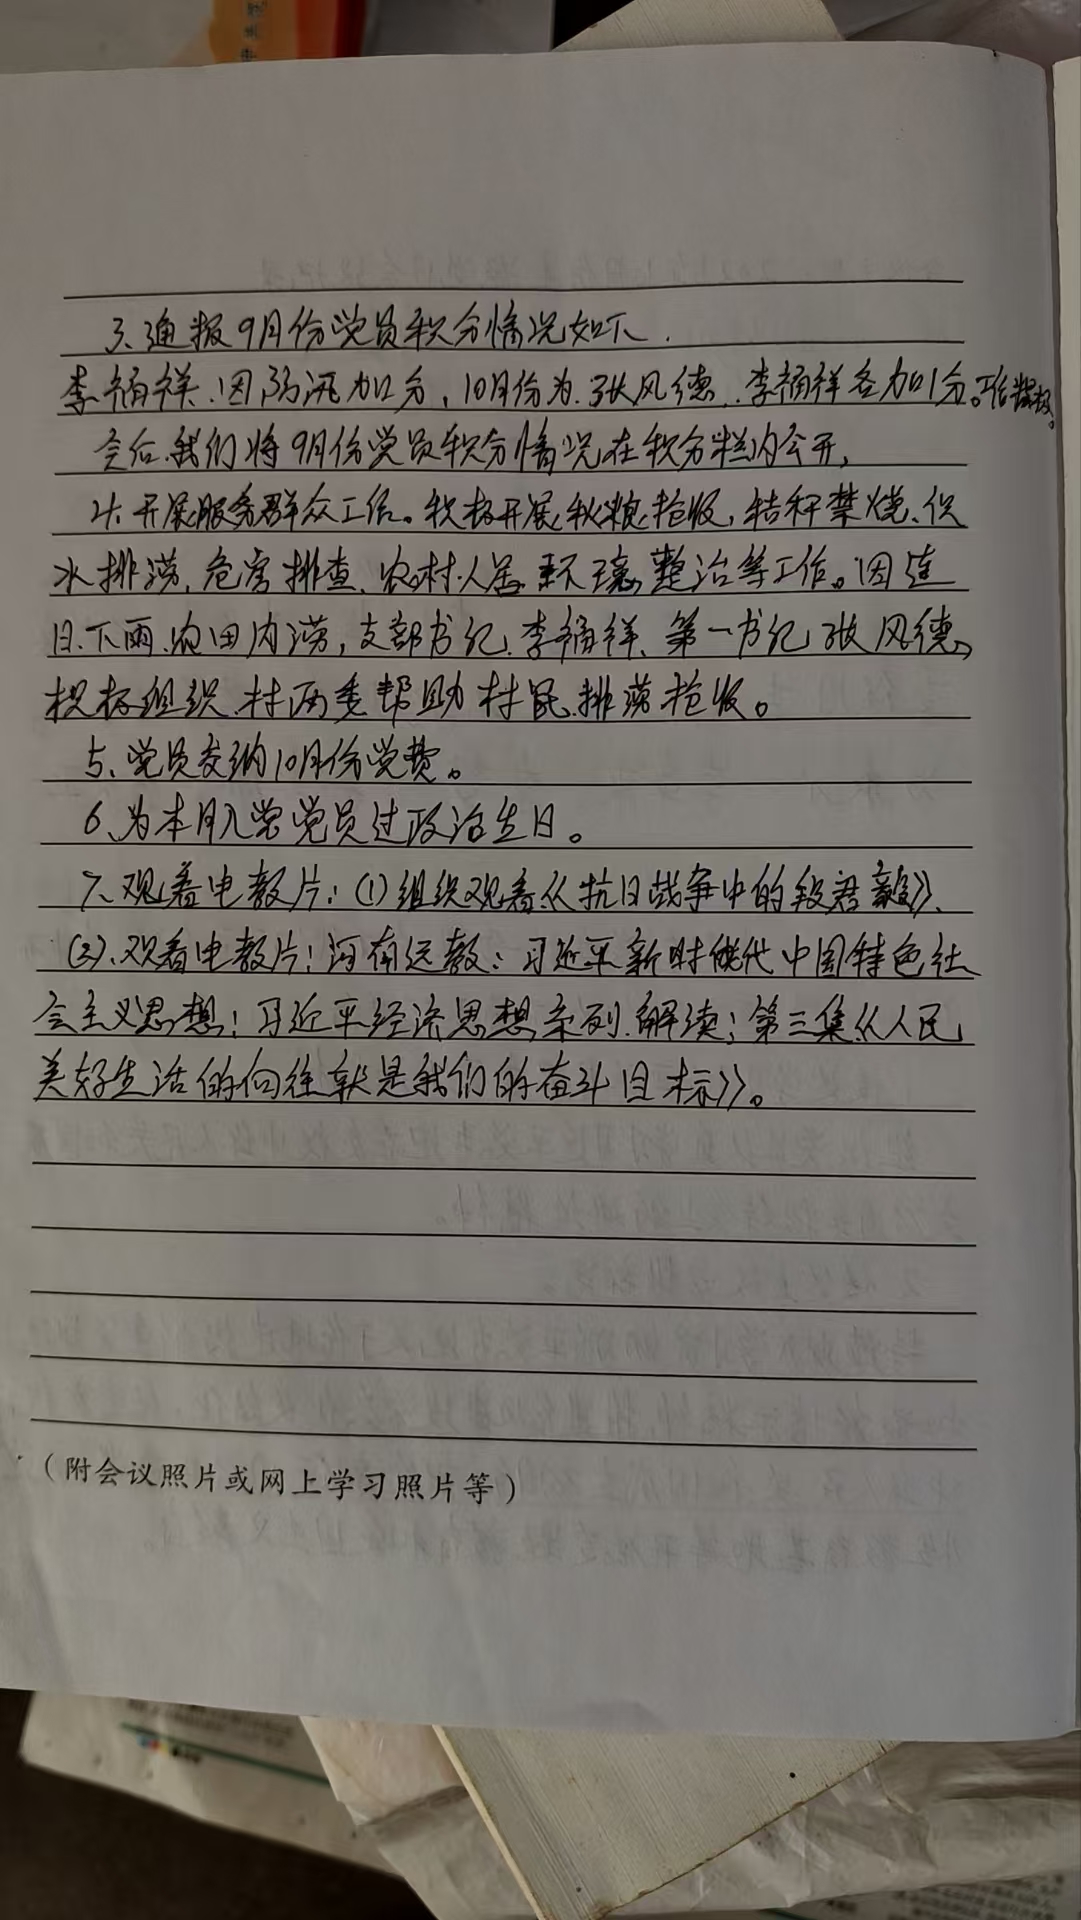 3、通报9月份党员积分情况如下.
李福祥.因防汛加分，10月份为.张风德.李福祥各加1分。工作积极。
会后.我们将9月份党员积分情况在积分栏内公开，
4.开展服务群众工作。积极开展秋粮抢收，秸秆禁烧、
水排涝，危房排查、农村人居环境整治等工作。因连
日.下雨.农田内涝，支部书记.李福祥、第一书记张风德、
积极组织.村两委帮助村民.排涝抢收。
5、党员交纳10月份党费。
6、为本月入党党员过政治生日。
7、观看电教片：(1)组织观看《抗日战争中的段君毅》、
(2)、观看电教片：河南远教：习近平新时代中国特色社
会主义思想：习近平经济思想系列.解读：第三集《人民
美好生活的向往就是我们的奋斗目标》。
（附会议照片或网上学习照片等）